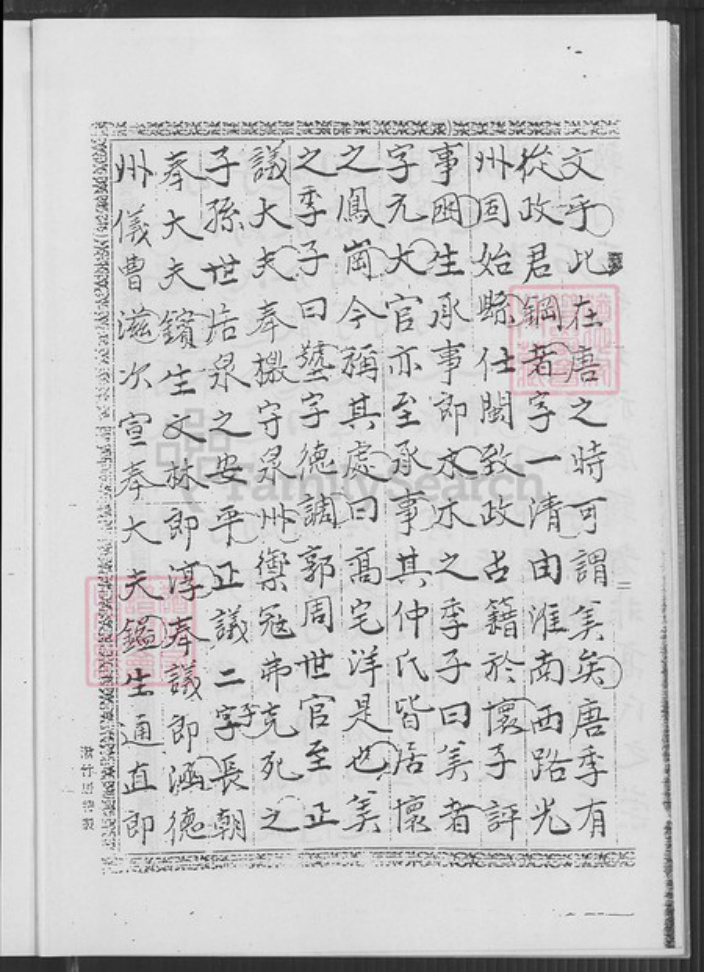 文乎此在唐之時可謂美矣唐季有
從政君鋼者字一清由淮南西路光
州固始縣仕閩致政占籍於懷子評
事囦生承事郎水水之季子曰美者
字亢大官亦至承事其仲氏皆居懷
之鳳崗今稱其處曰高宅洋是也美
之季子曰塾字德調郭周世官至正
議大夫奉檄守泉州禦冦弗克死之
子孫世居泉之安平正議二字子長朝
奉大夫鑌生文林郎淳奉議郎涵德
州儀曹滋次宣奉大夫鎰生通直郎
FamilySearch